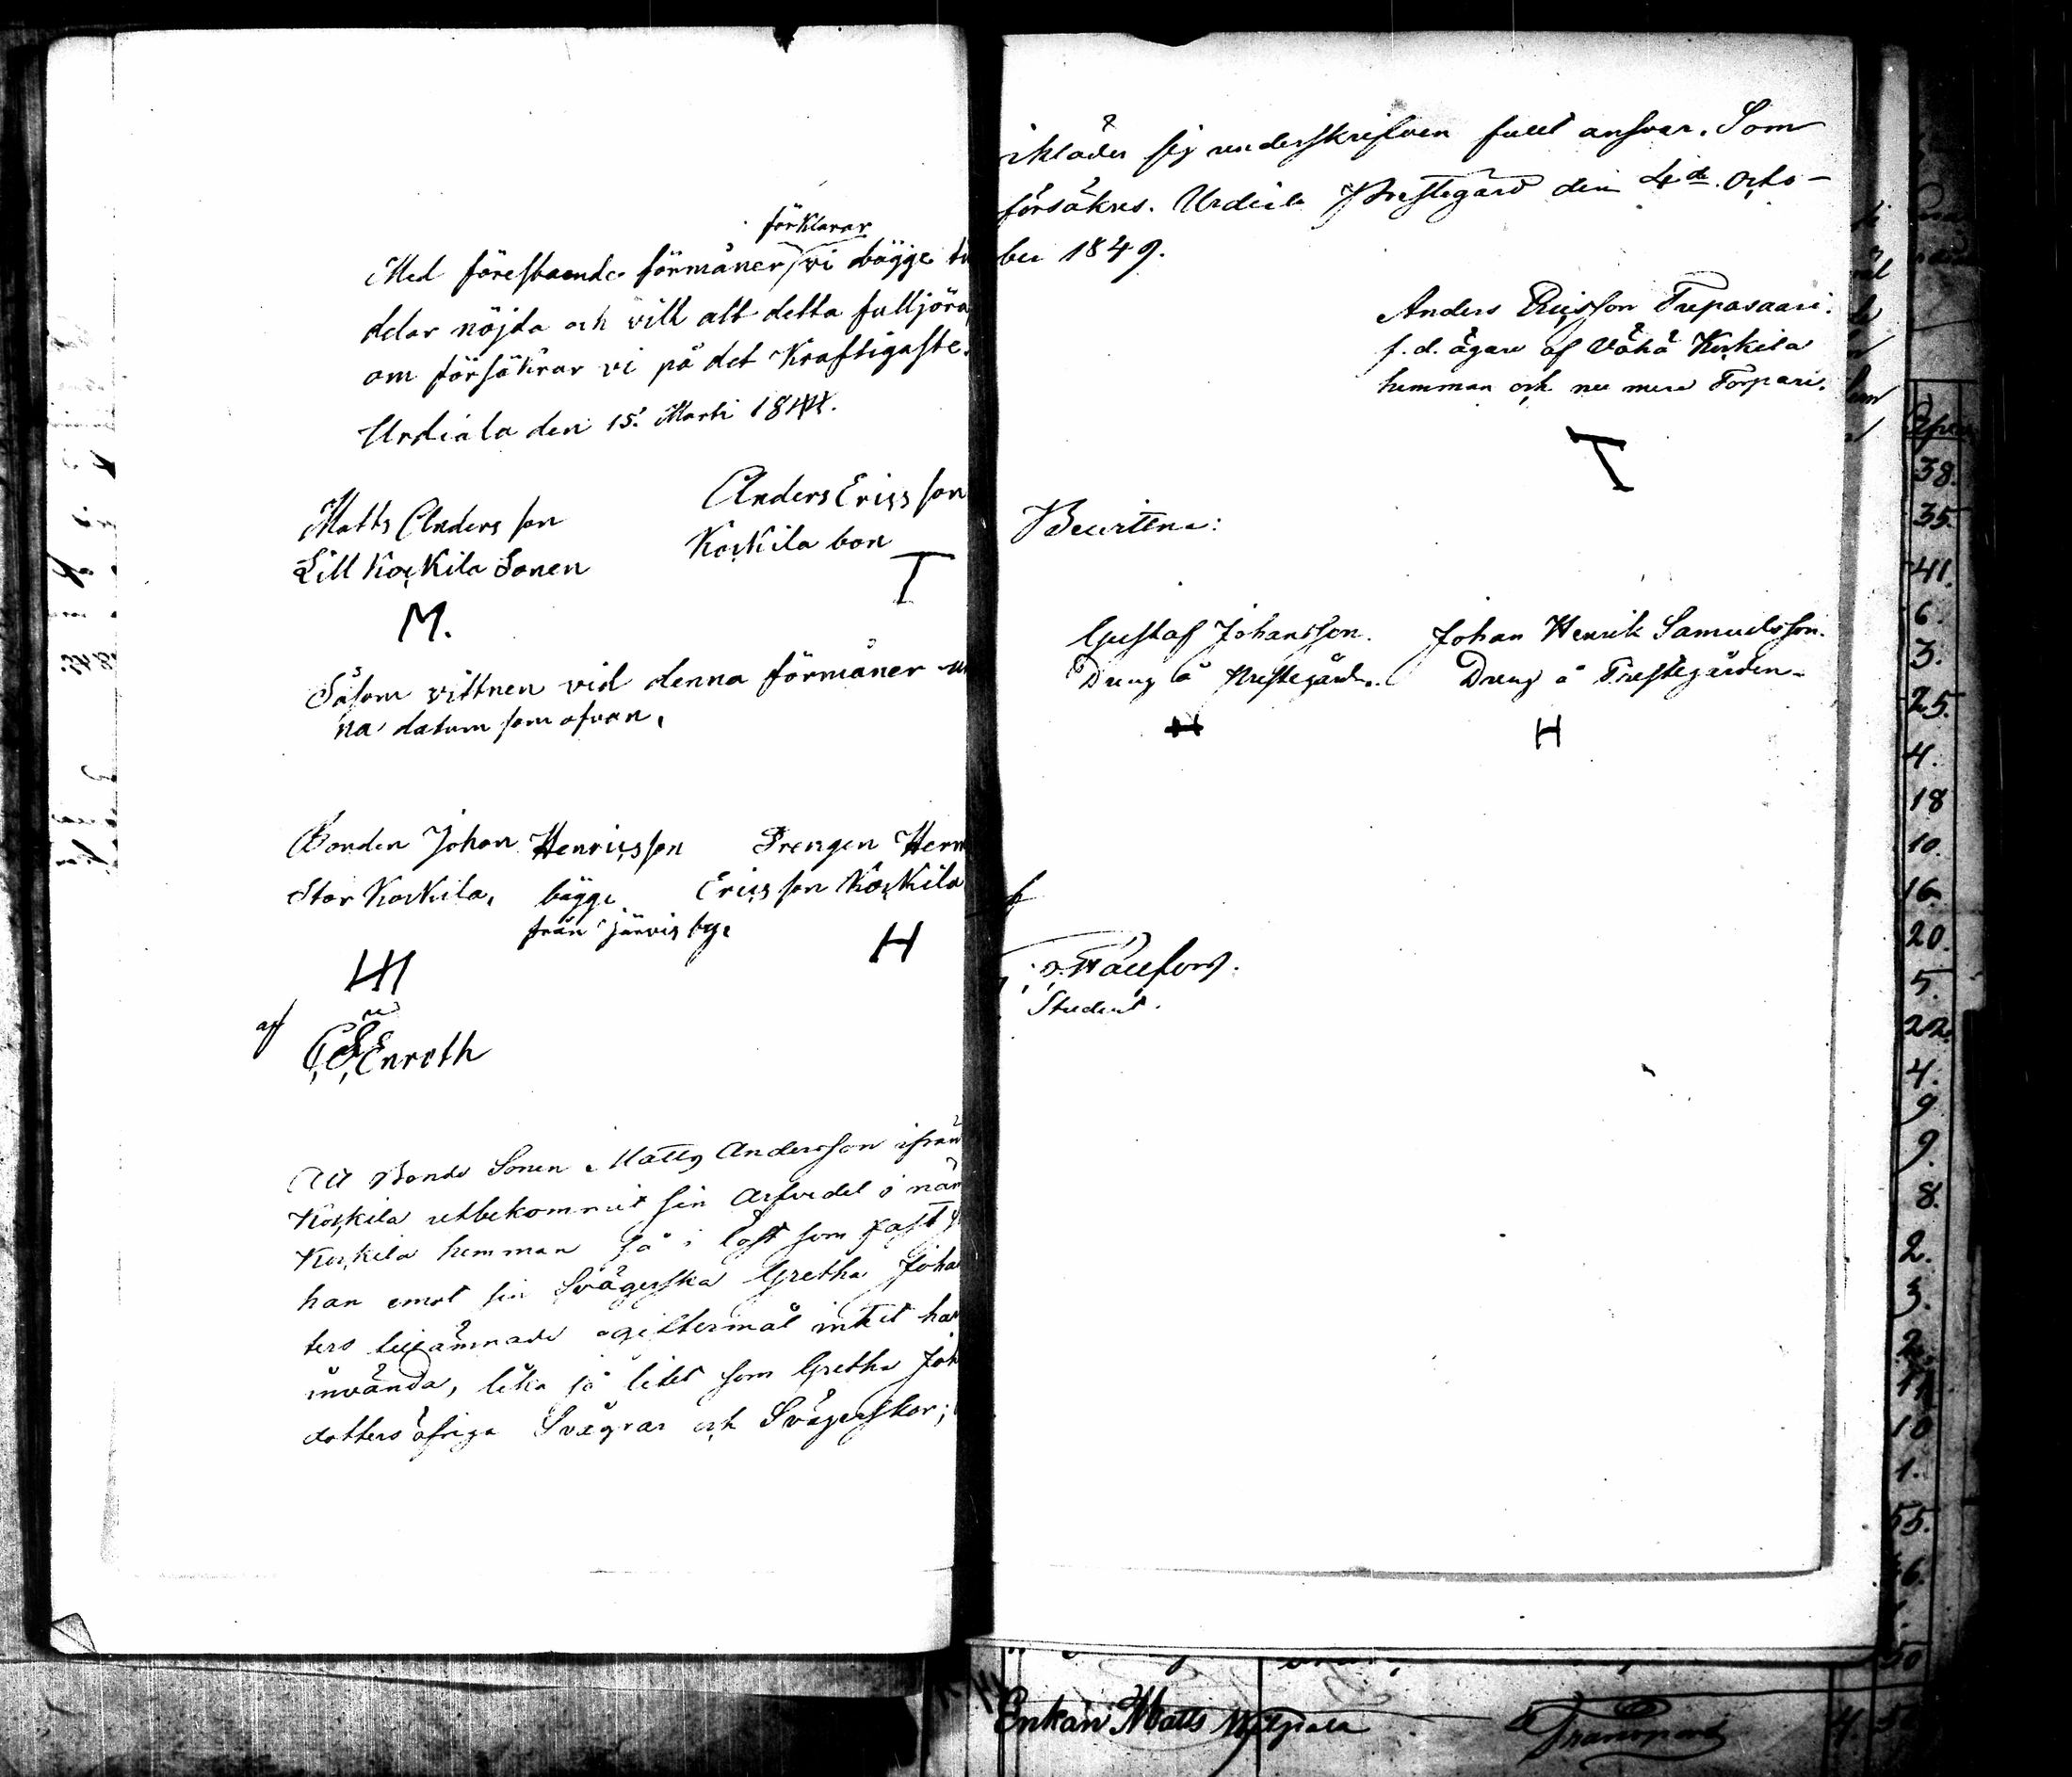 förklarar
Med förestående förmåner vi bägge
delar nöjda och vill att detta fulljöra
om försäkrar vi på det Kraftigaste.
Urdiala den 15. Marti 1844.
Matts Anders son
Lill Korkila Sonen
M.
Anders Erics son
Korkila bon
T
Såsom vittnen vid denna förmåner
na datum som ofvan,
Bonden Johan Henricsson
Stor Korkila, bägge
från järvis by
Drengen
Ericsson Korkila
H
af
Enroth
At Bonde Sonen Matts Andersson ifrån
Korkila utbekommit sin Arfvedel i
Korkila hemman så i löst som fast
han emot sin Svägerska Gretha Joha
ters tillämnade ägiftermål intet
invända, lika så litet som Gretha Joh
dotters öfriga Svägrar och Svägerskor;
ikläder sig underskrifven fullt ansvar. Som
försäkres. Urdiala Prestegård den 4de. Octo-
ber 1849.
Anders Ericsson Trepasaari.
f.d. ägare af Vähä Korkila
hemman och nu mera Torpare.
T
Bevittna:
Gustaf Johansson.
Dreng å Prestegården.
H
Johan Henrik Samuelsson.
Dreng å Prestegården.
H
Student.
38.
35.
41.
6.
3.
25.
4.
18
10.
16.
20.
5.
22.
4.
9
9.
8.
2.
3.
2.
10
1.
55.
6.
50
Enkan Matts
Transport
4.